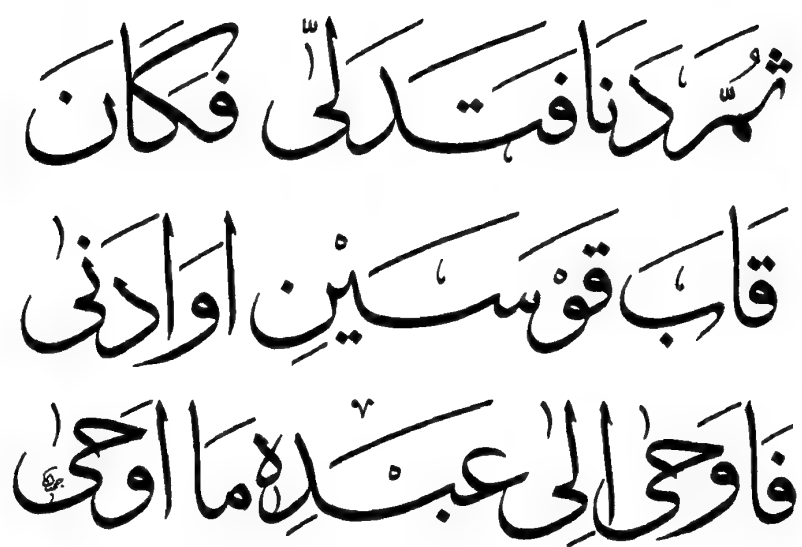 ثُمَّ دَنَا فَتَدَلّٰى فَكَانَ
قَابَ قَوْسَيْنِ اَوْ اَدْنٰى
فَاَوْحٰى اِلٰى عَبْدِهِ مَا اَوْحٰى